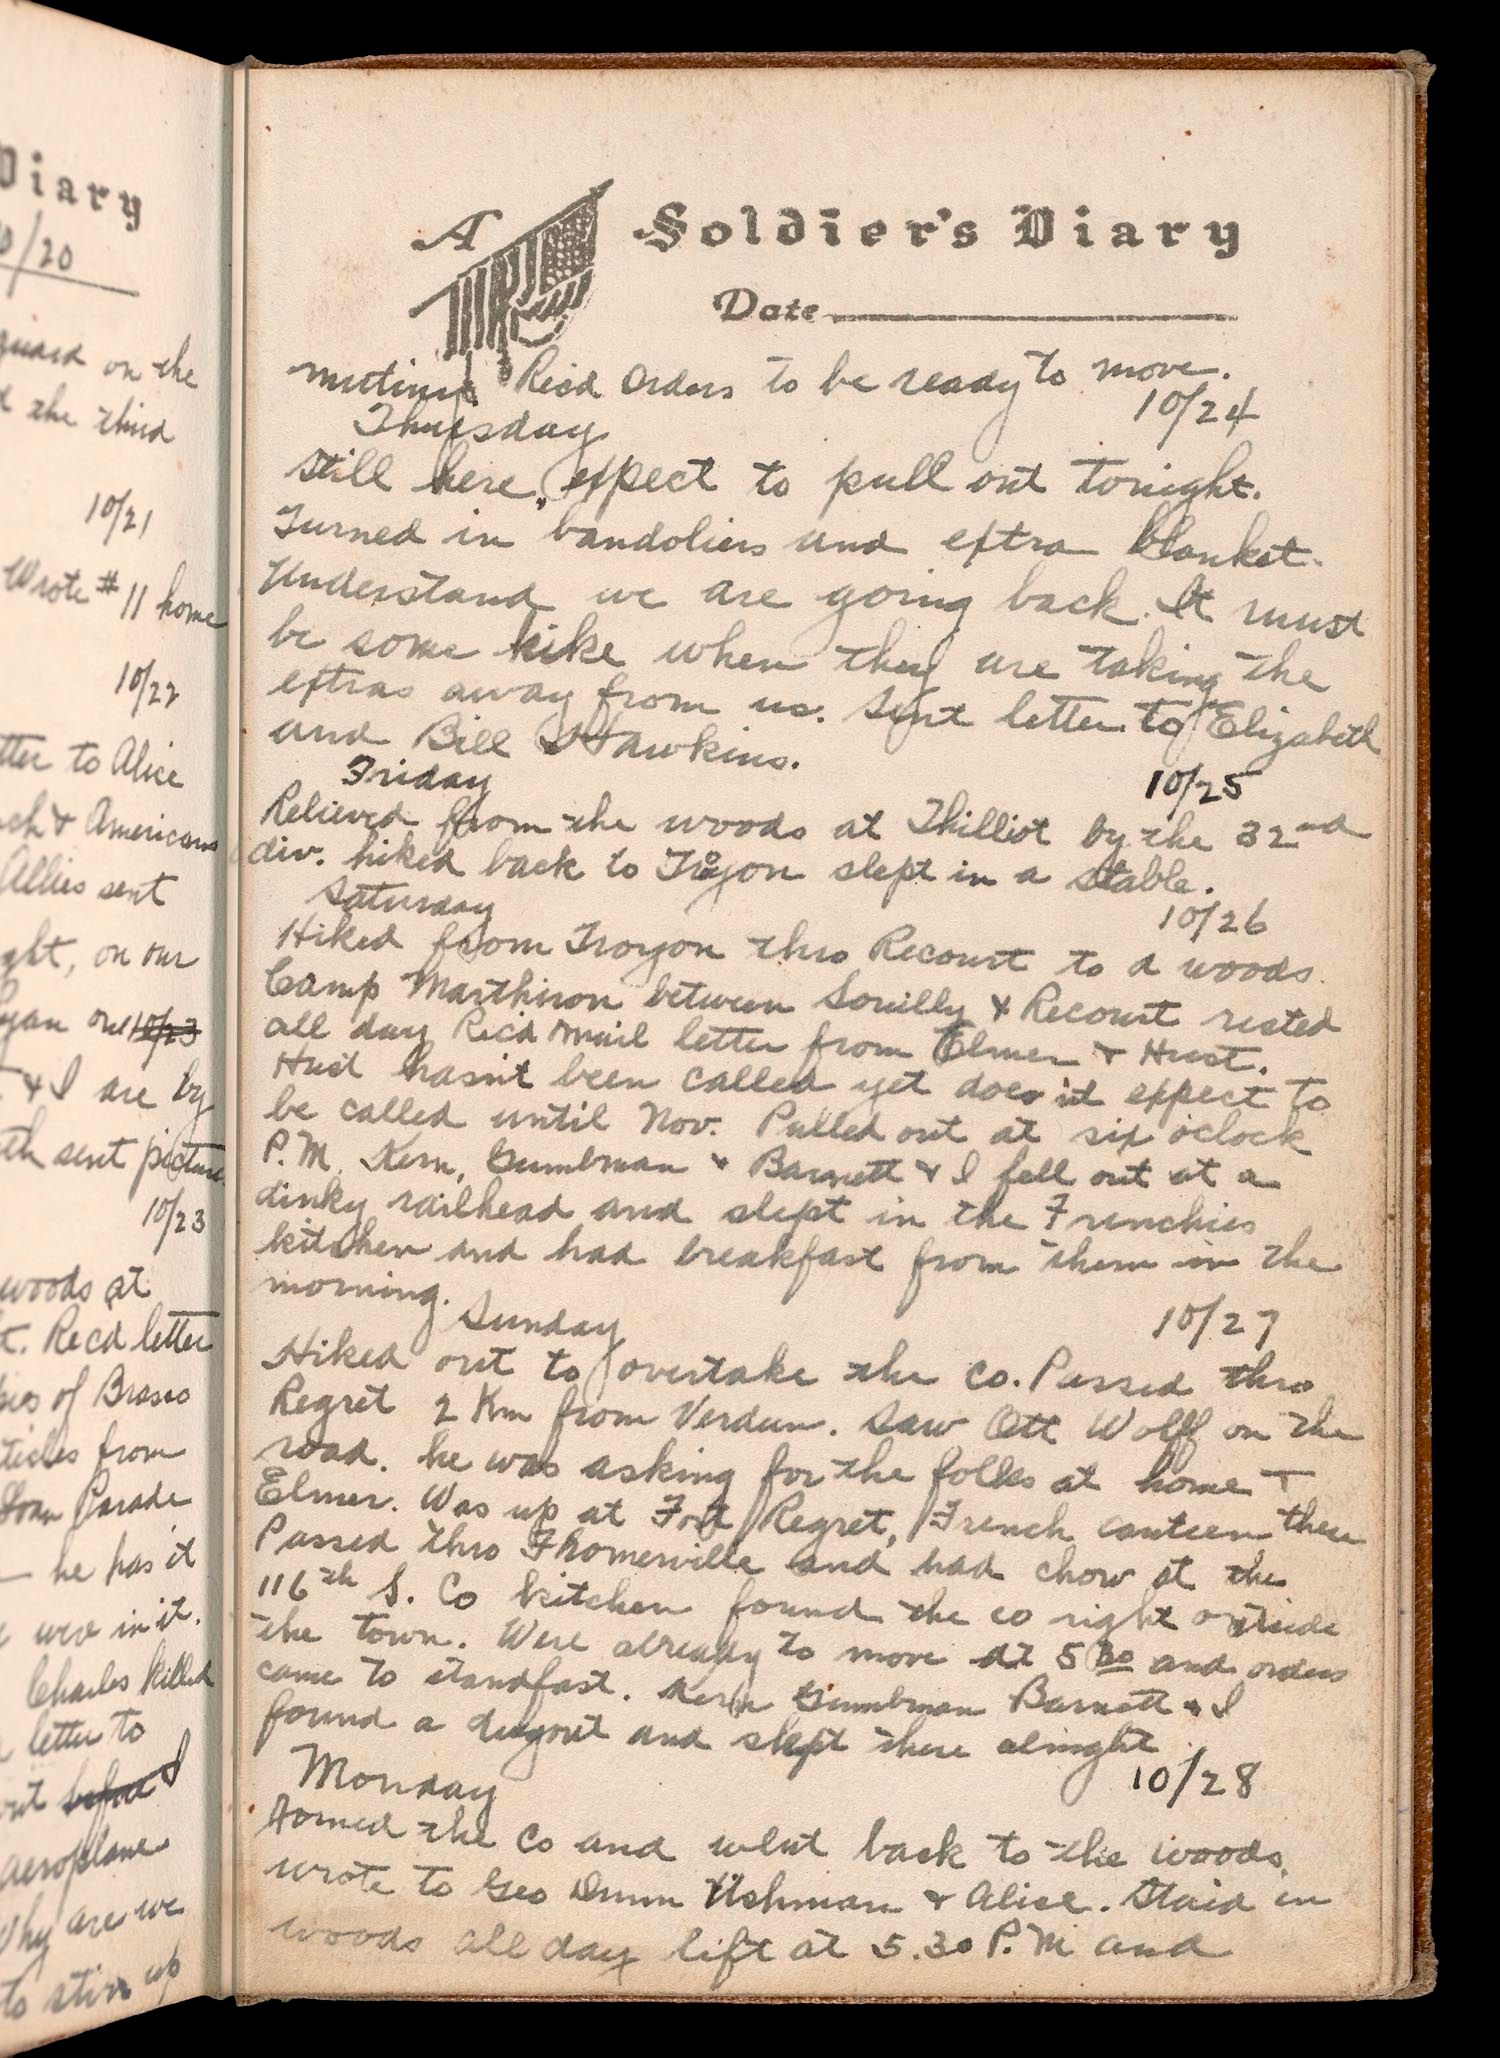 Diary
10/20
guard on the
the third
10/21
Wrote #11 home
10/22
to Alice
& Americans
Allies sent
on our
10/23
& I are by
sent picture
10/23
woods at
Recd letter
of Brass
from
Parade
he has it
were in it.
Charles killed
letter to
before I
aeroplane
Why are we
to stir up
A Soldier's Diary
Date
Rec'd Orders to be ready to move.
Thursday 10/24
Still here, expect to pull out tonight.
Turned in bandoliers and extra blanket.
Understand we are going back. It must
be some hike when they are taking the
extras away from us. Sent letter to Elizabeth
and Bill Hawkins.
Friday 10/25
Relieved from the woods at Thilliot by the 32nd
div. hiked back to Troyon slept in a stable.
Saturday 10/26
Hiked from Troyon thro Recourt to a woods
Camp Marthiron between Souilly & Recourt rested
all day Rec'd mail letter from Elmer & Hust.
Hust hasn't been called yet does'nt expect to
be called until Nov. Pulled out at six o'clock
P.M. Kern, Gumbman & Barnett & I fell out at a
dinky railhead and slept in the Frenchies
kitchen and had breakfast from them in the
morning.
Sunday 10/27
Hiked out to overtake the Co. Passed thro
Regret 2 Km from Verdun. Saw Ott Wolff on the
road. he was asking for the folks at home +
Elmer. Was up at Fort Regret, French canteen there
Passed thro Fhomerville and had chow at the
116th S. Co kitchen found the co right outside
the town. Were already to move at 5 30 and orders
came to standfast. Kern Gumbman Barnett & I
found a dugout and slept there alnight
Monday 10/28
Joined the Co and went back to the woods.
wrote to Geo Dunn Ushman & Alice. Staid in
woods all day left at 5.30 P.M and